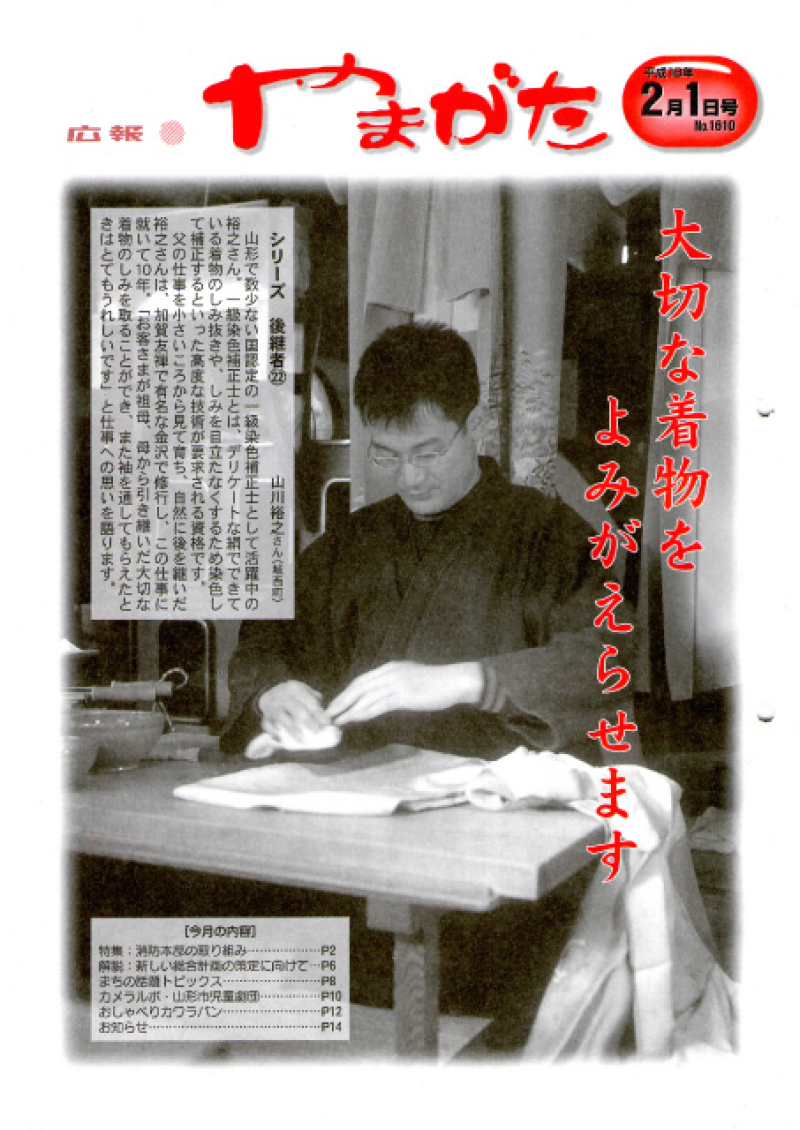 広報 やまがた
平成19年
2月1日号
No.1610
大切な着物を
よみがえらせます
シリーズ 後継者㉒
山川裕之さん(城西町)
山形で数少ない国認定の一級染色補正士として活躍中の
裕之さん。一級染色補正士とは、デリケートな絹でできて
いる着物のしみ抜きや、しみを目立たなくするため染色し
て補正するといった高度な技術が要求される資格です。
父の仕事を小さいころから見て育ち、自然に後を継いだ
裕之さんは、加賀友禅で有名な金沢で修行し、この仕事に
就いて10年。「お客さまが祖母、母から引き継いだ大切な
着物のしみを取ることができ、また袖を通してもらえたと
きはとてもうれしいです」と仕事への思いを語ります。
[今月の内容]
特集:消防本部の取り組み…………………P2
解説:新しい総合計画の策定に向けて…P6
まちの話題トピックス………………………P8
カメラルポ・山形市児童劇団………………P10
おしゃべりカワラバン………………………P12
お知らせ………………………………………P14